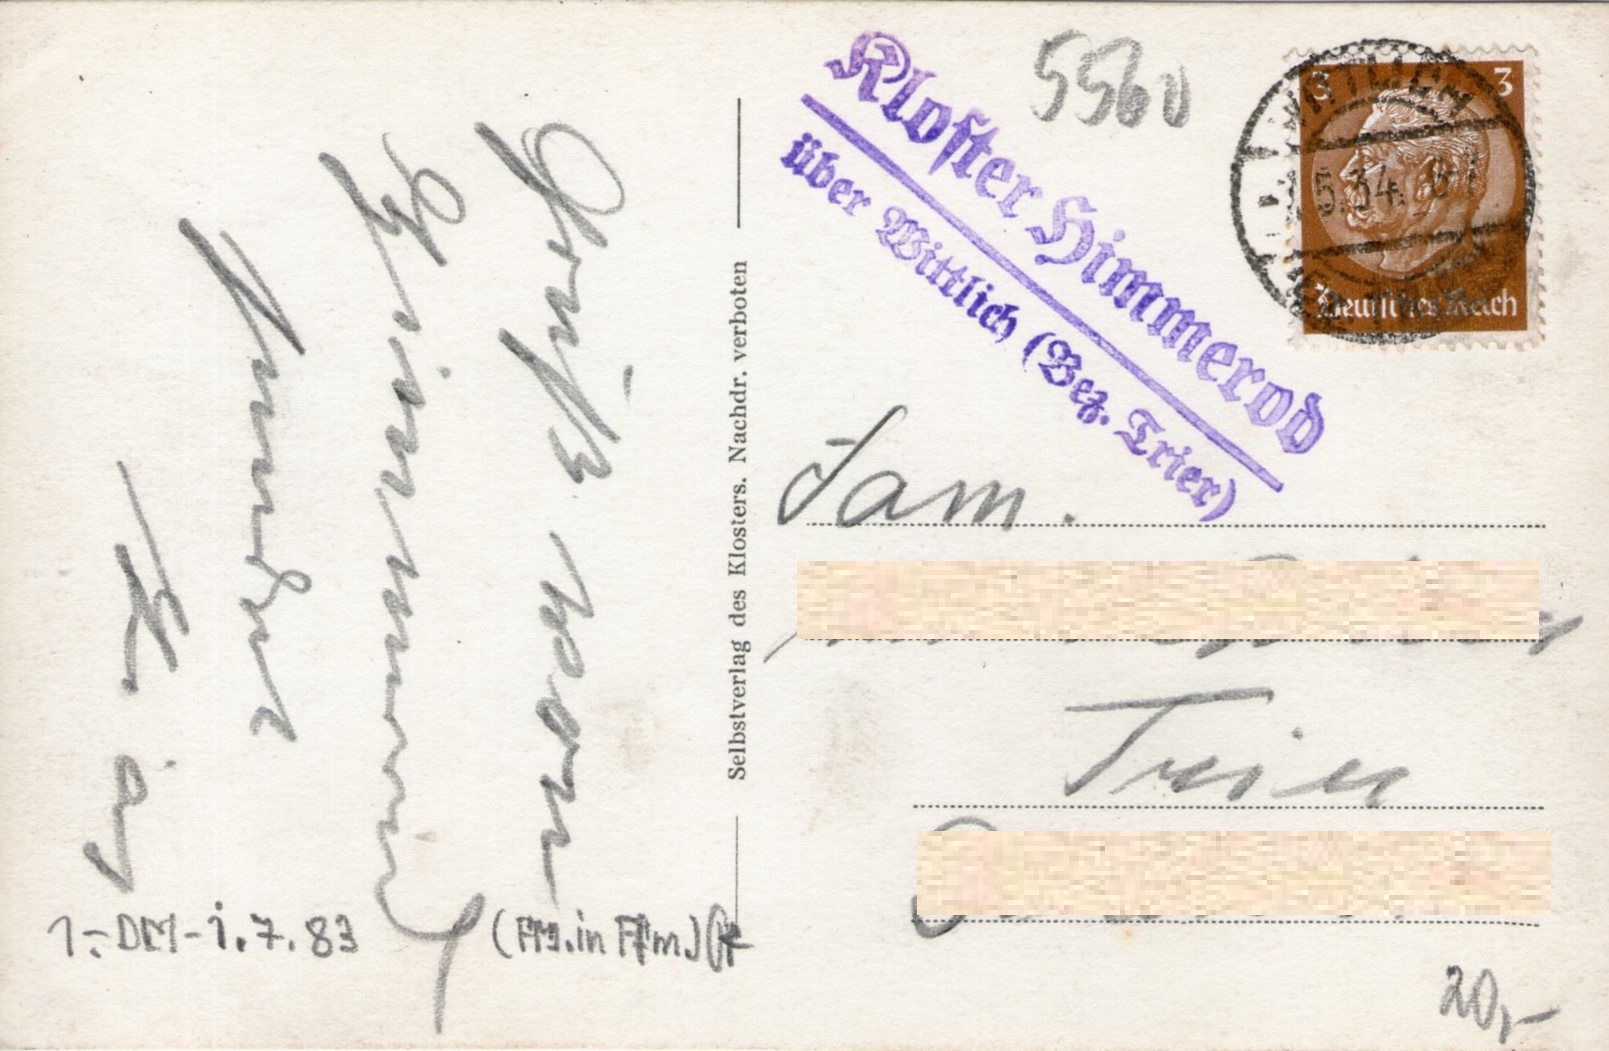 Gruß von
Himmerod
sendet
Selbstverlag des Klosters. Nachdr. verboten
5560
Kloster Himmerod
über Wittlich (Bez. Trier)
3 3
WITTLICH
5.34. 8
Deutsches Reich
Fam.
Trier
1.- DM - 1.7.83
(Fm. in Ffm.)
20,-